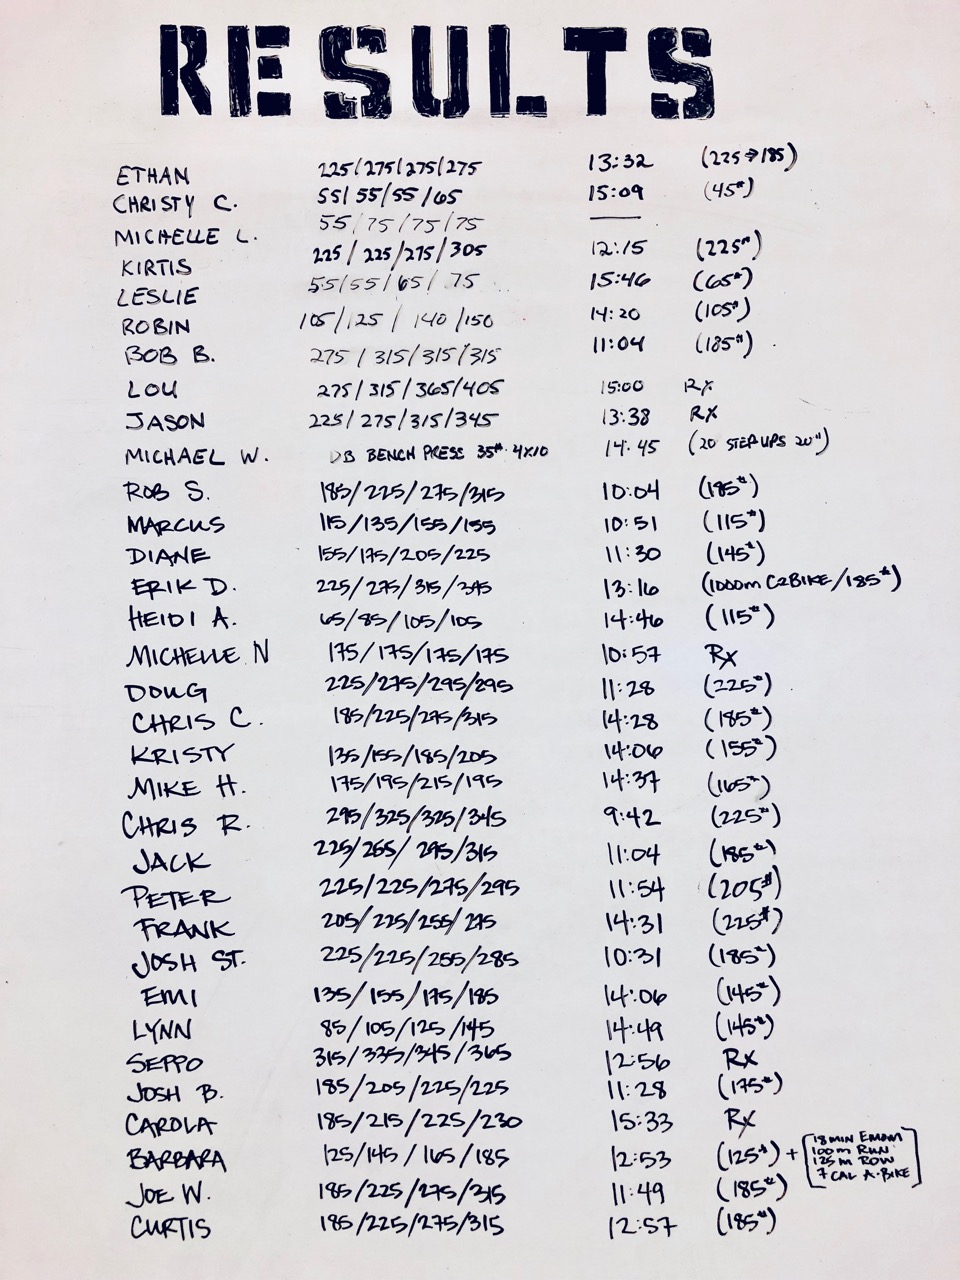 RESULTS
ETHAN 225/275/275/275 13:32 (225→185)
CHRISTY C. 55/55/55/65 15:09 (45#)
MICHELLE L. 55/75/75/75 —
KIRTIS 225/225/275/305 12:15 (225#)
LESLIE 55/55/65/75 15:46 (65#)
ROBIN 105/125/140/150 14:20 (105#)
BOB B. 275/315/315/315 11:04 (185#)
LOU 275/315/365/405 15:00 RX
JASON 225/275/315/345 13:38 RX
MICHAEL W. DB BENCH PRESS 35#. 4x10 14:45 (20 STEP UPS 20")
ROB S. 185/225/275/315 10:04 (185#)
MARCUS 115/135/155/155 10:51 (115#)
DIANE 155/175/205/225 11:30 (145#)
ERIK D. 225/275/315/345 13:16 (1000m C2BIKE/185#)
HEIDI A. 65/85/105/105 14:46 (115#)
MICHELLE N 175/175/175/175 10:57 Rx
DOUG 225/275/295/295 11:28 (225#)
CHRIS C. 185/225/275/315 14:28 (185#)
KRISTY 135/155/185/205 14:06 (155#)
MIKE H. 175/195/215/195 14:37 (165#)
CHRIS R. 295/325/325/345 9:42 (225#)
JACK 225/265/295/315 11:04 (185#)
PETER 225/225/275/295 11:54 (205#)
FRANK 205/225/255/275 14:31 (225#)
JOSH ST. 225/225/255/285 10:31 (185#)
EMI 135/155/175/185 14:06 (145#)
LYNN 85/105/125/145 14:49 (145#)
SEPPO 315/335/345/365 12:56 RX
JOSH B. 185/205/225/225 11:28 (175#)
CAROLA 185/215/225/230 15:33 Rx
BARBARA 125/145/165/185 12:53 (125#) + [18 MIN EMOM
100m RUN
125m ROW
7 CAL A-BIKE]
JOE W. 185/225/275/315 11:49 (185#)
CURTIS 185/225/275/315 12:57 (185#)